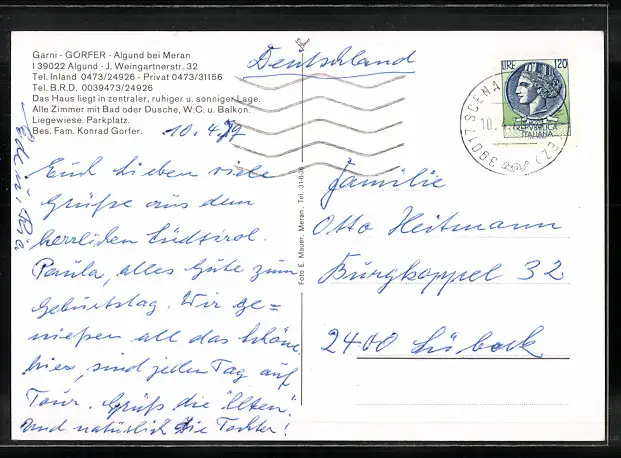 Garni - GORFER - Algund bei Meran
I 39022 Algund - J. Weingartnerstr. 32
Tel. Inland 0473/24926 - Privat 0473/31156
Tel. B.R.D. 0039473/24926
Das Haus liegt in zentraler, ruhiger u. sonniger Lage.
Alle Zimmer mit Bad oder Dusche, W.C. u. Balkon.
Liegewiese. Parkplatz.
Bes. Fam. Konrad Gorfer.
10.4.79
Euch Lieben viele
Grüße aus dem
herrlichen Südtirol.
Paula, alles Gute zum
Geburtstag. Wir ge=
nießen all das Schöne
hier, sind jeden Tag auf
Tour. Grüß die "Alten".
und natürlich die Tochter!
Foto E. Mauer, Meran, Tel.
Deutschland
LIRE 120
REPVBBLICA
ITALIANA
39017 SCENA
10.
(BZ)
Familie
Otto Heitmann
Burgkoppel 32
2400 Lübeck